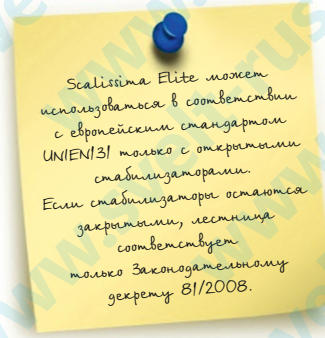 Scalissima Elite может
использоваться в соответствии
с европейским стандартом
UNIEN131 только с открытыми
стабилизаторами.
Если стабилизаторы остаются
закрытыми, лестница
соответствует
только Законодательному
декрету 81/2008.